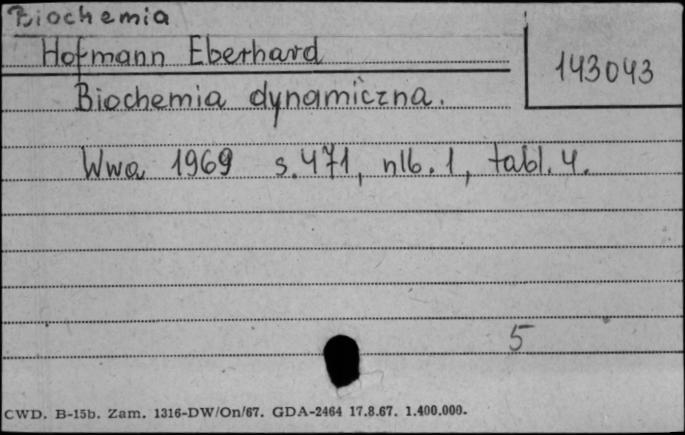 Biochemia
Hofmann Eberhard
143043
Biochemia dynamiczna.
Wwa 1969 s. 471, nlb. 1, tabl. 4.
5
CWD. B-15b. Zam. 1316-DW/On/67. GDA-2464 17.8.67. 1.400.000.